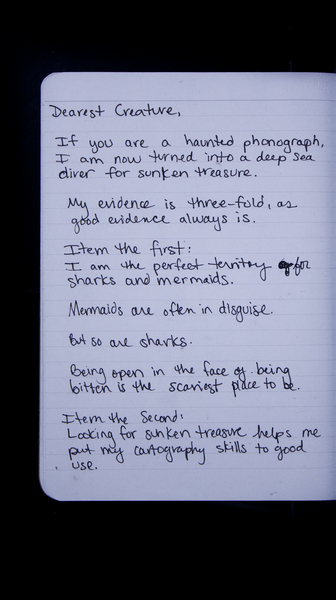 Dearest Creature,
If you are a haunted phonograph,
I am now turned into a deep sea
diver for sunken treasure.
My evidence is three-fold, as
good evidence always is.
Item the first:
I am the perfect territory for
sharks and mermaids.
Mermaids are often in disguise.
But so are sharks.
Being open in the face of being
bitten is the scariest place to be.
Item the Second:
Looking for sunken treasure helps me
put my cartography skills to good
use.